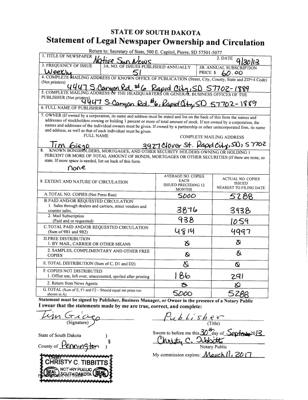 STATE OF SOUTH DAKOTA
Statement of Legal Newspaper Ownership and Circulation
Return to: Secretary of State, 500 E. Capitol, Pierre, SD 57501-5077
1. TITLE OF NEWSPAPER Native Sun News 2. DATE 9/30/13
3. FREQUENCY OF ISSUE Weekly 3A. NO. OF ISSUES PUBLISHED ANNUALLY 51 3B. ANNUAL SUBSCRIPTION PRICE $ 60.00
4. COMPLETE MAILING ADDRESS OF KNOWN OFFICE OF PUBLICATION (Street, City, County, State and ZIP+4 Code) (Not printers)
4447 S. Canyon Rd. #6 Rapid City, SD 57702-1889
5. COMPLETE MAILING ADDRESS OF THE HEADQUARTERS OF GENERAL BUSINESS OFFICES OF THE PUBLISHER (Not printer)
4447 S. Canyon Rd. #6, Rapid City, SD 57702-1889
6. FULL NAME OF PUBLISHER:
7. OWNER (If owned by a corporation, its name and address must be stated and also the names and
addresses of stockholders owning or holding 1 percent or more of total amount of stock. If not owned by a corporation, the
names and addresses of the individual owners must be given.
FULL NAME COMPLETE MAILING ADDRESS
Tim Giago 3427 Clover St. Rapid City, SD 57702
8. KNOWN BONDHOLDERS, MORTGAGEES, AND OTHER SECURITY HOLDERS OWNING OR HOLDING 1
PERCENT OR MORE OF TOTAL AMOUNT OF BONDS, MORTGAGES OR OTHER SECURITIES (If there are none, so
state. If more space is needed, list on back of this form.
none
9. EXTENT AND NATURE OF CIRCULATION
AVERAGE NO. COPIES EACH ISSUED PRECEDING 12 MONTHS
ACTUAL NO. COPIES ISSUED NEAREST TO FILING DATE
A. TOTAL NO. COPIES (Net Press Run) 5000 5288
B. PAID AND/OR REQUESTED CIRCULATION
1. Sales through dealers and carriers, street vendors and counter sales. 3876 3938
2. Mail Subscription (Paid and or requested) 938 1059
C. TOTAL PAID AND/OR REQUESTED CIRCULATION (Sum of 9B1 and 9B2) 4814 4997
D. FREE DISTRIBUTION
1. BY MAIL, CARRIER OR OTHER MEANS
2. SAMPLES, COMPLIMENTARY AND OTHER FREE COPIES
E. TOTAL DISTRIBUTION (Sum of C, D1 and D2)
F. COPIES NOT DISTRIBUTED
1. Office use, left over, unaccounted, spoiled after printing 186 291
2. Return from News Agents
G. TOTAL 5000 5288
Statement must be signed by Publisher, Business Manager, or Owner in the presence of a Notary Public
I swear that the statements made by me are true, correct, and complete:
Tim Giago Publisher
(Signature) (Title)
State of South Dakota )
County of Pennington )
Sworn to before me this 30th day of September 13.
Christy C. Tibbitts
Notary Public
My commission expires: March 11, 2017
CHRISTY C. TIBBITTS
NOTARY PUBLIC
SOUTH DAKOTA